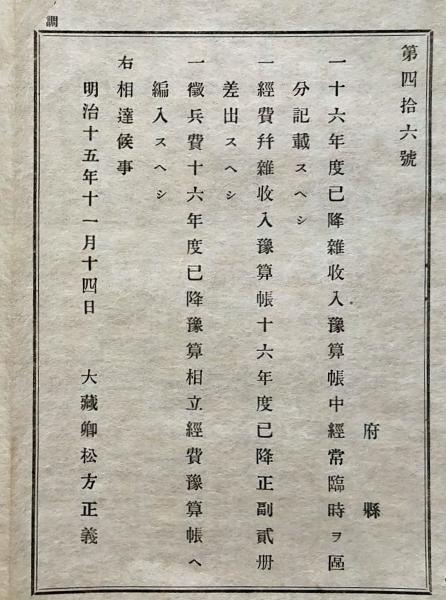 第四拾六號
府縣
一十六年度已降雜收入豫算帳中經常臨時ヲ區
分記載スヘシ
一經費幷雜收入豫算帳十六年度已降正副貳册
差出スヘシ
一徵兵費十六年度已降豫算相立經費豫算帳ヘ
編入スヘシ
右相達候事
明治十五年十一月十四日 大藏卿松方正義
調